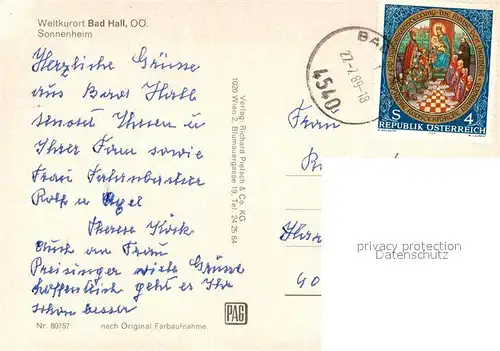 Weltkurort Bad Hall, OÖ.
Sonnenheim
Herzliche Grüsse
aus Bad Hall
Ihnen u
Ihrer Fam sowie
Frau
Rolf u
Therese Köck
Auch an Frau
Preisinger viele Grüsse
hoffentlich geht es Ihr
schon besser
Nr. 80757 nach Original Farbaufnahme
Verlag: Richard Pietsch & Co. KG
1020 Wien 2, Blumauergasse 19, Tel. 24 25 84
PAG
BAD
27.-7.89-18
4540
S 4
REPUBLIK ÖSTERREICH
Frau
privacy protection
Datenschutz